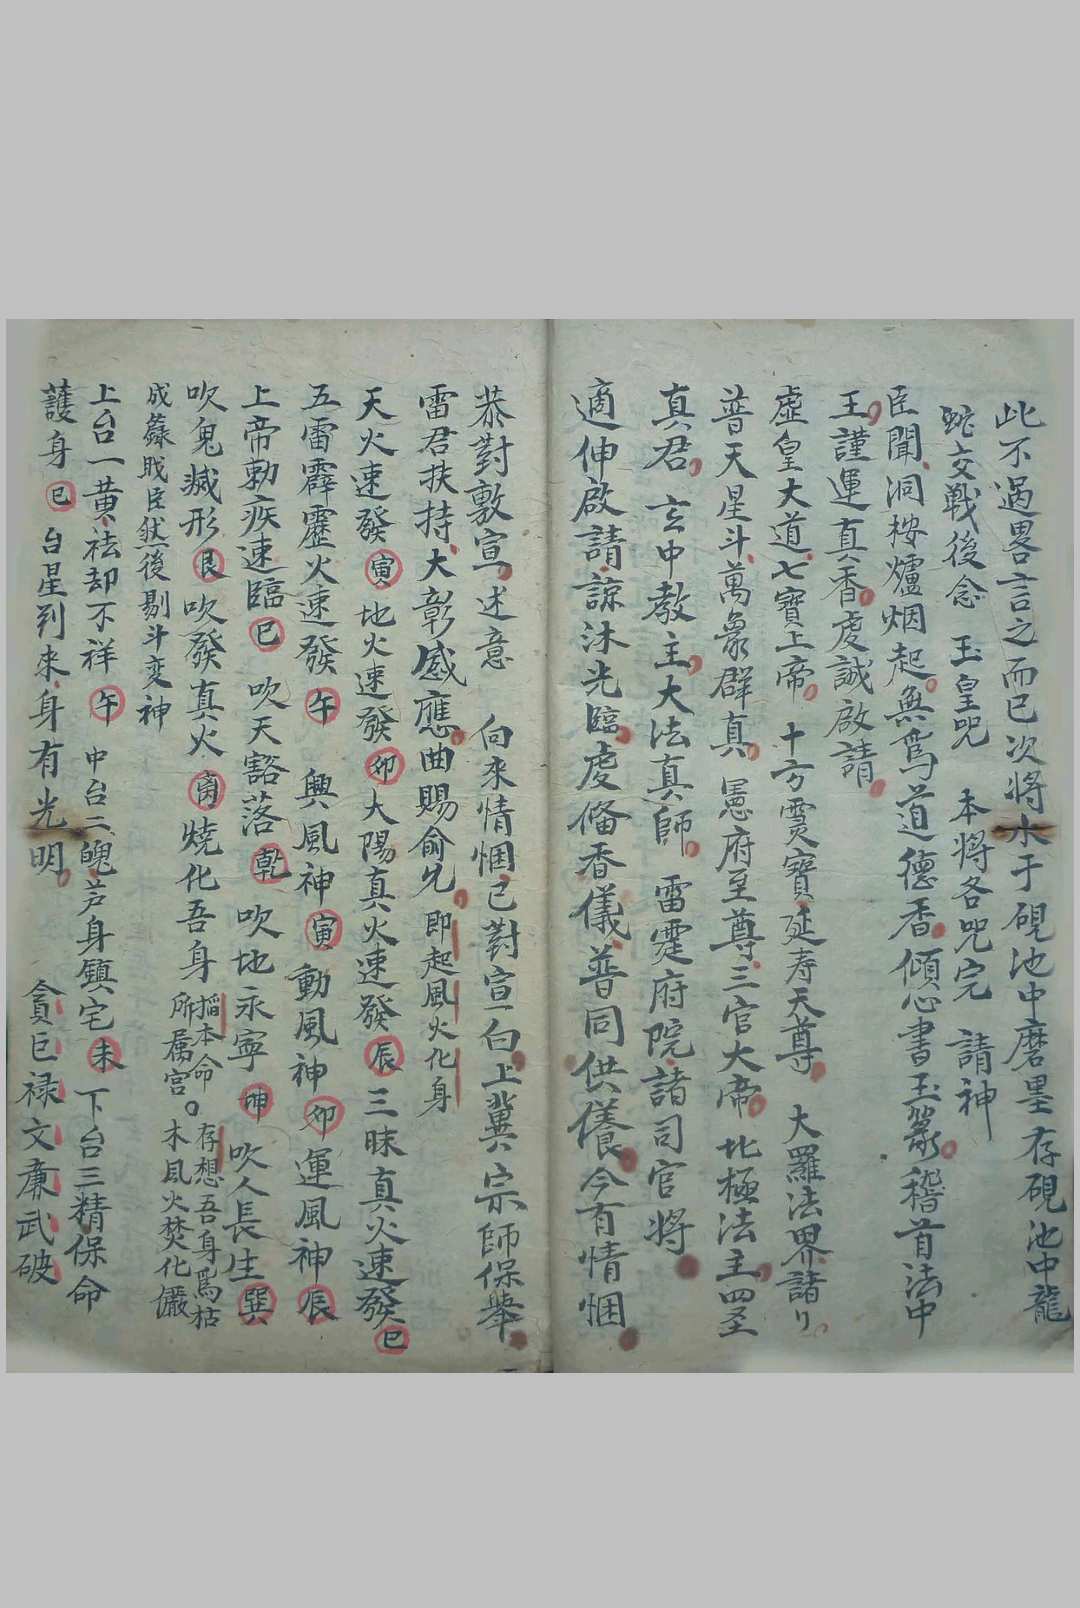 此不過畧言之而已次將水于硯池中磨墨存硯池中龍
蛇交戰後念 玉皇咒 本將各咒完 請神
臣聞洞桉爐烟起無為道德香傾心書玉篆稽首法中
王謹運真香虔誠啟請
虛皇大道七寶上帝 十方灵寶延寿天尊 大羅法界諸
普天星斗萬彖群真 憲府至尊三官大帝 北極法主四圣
真君 玄中教主大法真師 雷霆府院諸司官將
適伸啟請諒沐光臨虔俻香儀普同供養今有情悃
恭對敷宣述意 向來情悃已對宣白上冀宗師保舉
雷君扶持大彰感應曲賜俞允 即起風火化身
天火速發寅地火速發卯太陽真火速發辰三昧真火速發巳
五雷霹靂火速發午 興風神寅動風神卯運風神辰
上帝勅疾速臨巳 吹天豁落乾吹地永寧坤吹人長生巽
吹鬼滅形艮吹發真火离燒化吾身 搯本命所属宮。存想吾身為枯木風火焚化儼
成籙戝臣然後剔斗变神
上台一黄祛却不祥午 中台二魄芦身鎮宅未 下台三精保命
護身巳 台星到來身有光明 貪巨禄文廉武破